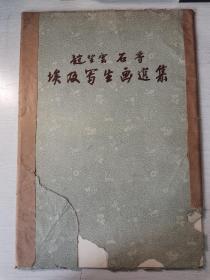 赵望云 石鲁
埃及写生画选集